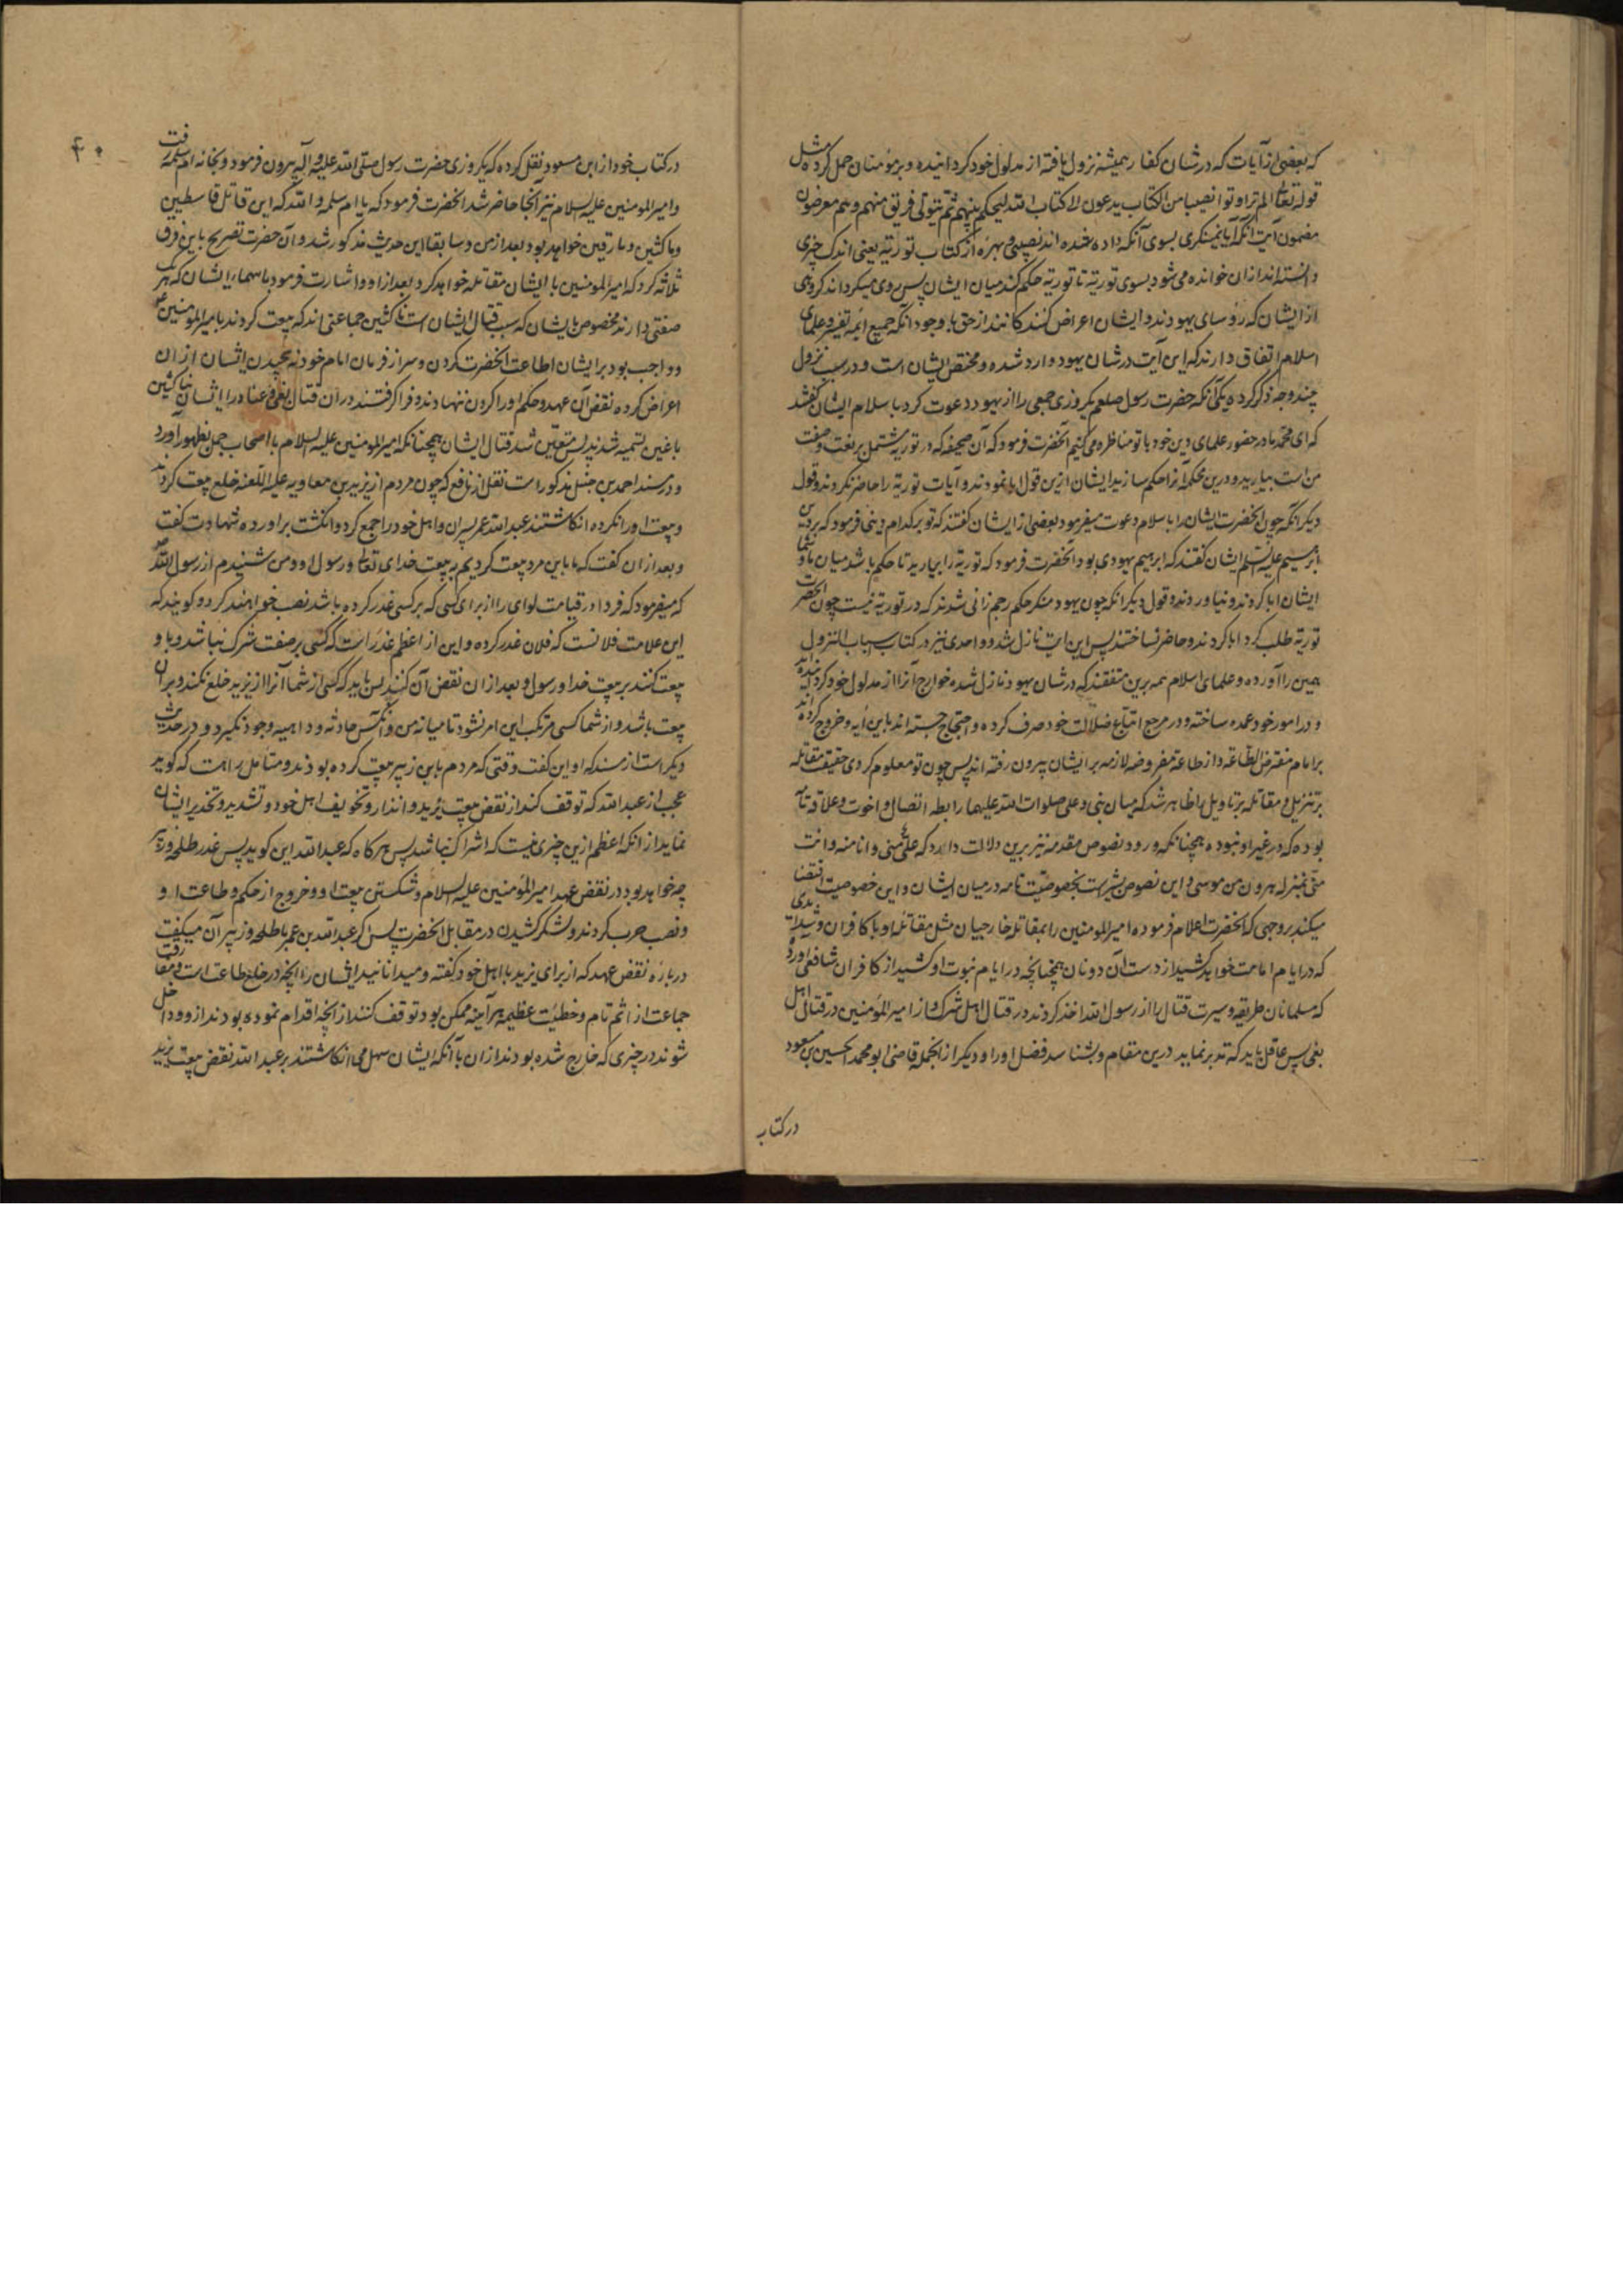 که بعضی از آیات که در شان کفار همیشه نزول یافته از مدلول خود کردانیده و بر مؤمنان حمل کرده مثل
قوله تعالی الم تر اوتوا نصیبا من الکتاب یدعون لا کتاب الله لیحکم بینهم ثم یتولی فریق منهم وهم معرضون
مضمون آیت آنکه آیا نمینکری بسوی آنکه داده شده اند نصیبی و بهره از کتاب توریة یعنی اندک چیزی
دانسته اند از ان خوانده می شود بسوی توریة تا توریة حکم کند میان ایشان پس روی میکرداند کروهی
از ایشان که رؤسای یهودند و ایشان اعراض کنندکانند از حق با وجود آنکه جمیع ائمه تفسیر و علمای
اسلام اتفاق دارند که این آیت در شان یهود وارد شده و مختص ایشان است و در سبب نزول
چند وجه ذکر کرده یکی آنکه حضرت رسول صلعم یکروزی جمعی را از یهود دعوت کرد باسلام ایشان کفتند
که ای محمد ما در حضور علمای دین خود با تو مناظره می کنیم آنحضرت فرمود که آن صحیفه که در توریة مشتمل بر نعت و صفت
من است بیارید و درین محکمه آنرا حکم سازید ایشان ازین قول ابا نمودند و آیات توریة را حاضر نکردند و قول
دیکر آنکه چون آنحضرت ایشان را باسلام دعوت میفرمود بعضی از ایشان کفتند که تو بر کدام دینی فرمود که بر دین
ابرهیم علیه السلم ایشان کفتند که ابرهیم یهودی بود آنحضرت فرمود که توریة را بیارید تا حکم باشد میان ما و شما
ایشان ابا کردند و نیاوردند و قول دیکر آنکه چون یهود منکر حکم رجم زانی شدند که در توریة نیست چون آنحضرت
توریة طلب کرد ابا کردند و حاضر نساختند پس این آیت نازل شد و واحدی نیز در کتاب اسباب النزول
همین را آورده و علمای اسلام همه برین متفقند که در شان یهود نازل شده خوارج آنرا از مدلول خود کردانیده اند
و در امور خود عمده ساخته و در مرجع اتباع ضلالت خود صرف کرده و احتجاج جسته اند باین آیه و خروج کرده اند
بر امام مفترض الطاعة و از طاعة مفروضه لازمه بر ایشان بیرون رفته اند پس چون تو معلوم کردی حقیقت مقاتله
بر تنزیل و مقاتله بر تاویل را ظاهر شد که میان نبی و علی صلوات الله علیهما رابطه اتصال و اخوت و علاقه تام
بوده که در غیر او نبوده همچنانکه ورود نصوص مقدمه نیز برین دلالت دارد که علی منی و انا منه و انت
منی بمنزله هرون من موسی و این نصوص مشیر است بخصوصیت تامه در میان ایشان و این خصوصیت اقتضا
میکند بر وجهی که آنحضرت اعلام فرموده امیر المومنین را بمقاتله خارجیان مثل مقاتله او با کافران و شداید
که در ایام امامت خواهد کشید از دست آن دونان همچنانچه در ایام نبوت او کشید از کافران شافعی آورده
که مسلمانان طریقه و سیرت قتال را از رسول الله اخذ کردند در قتال اهل شرک و از امیر المؤمنین در قتال اهل
بغی پس عاقل باید که تدبر نماید درین مقام و بشناسد فضل او را و دیکر از آنجمله قاضی ابو محمد الحسین بن مسعود
در کتاب
۴۰
در کتاب خود از ابن مسعود نقل کرده که یکروزی حضرت رسول صلی الله علیه و آله بیرون فرمود و بخانه ام سلمه رفت
و امیر المومنین علیه السلام نیز آنجا حاضر شد آنحضرت فرمود که یا ام سلمه والله که این قاتل قاسطین
و ناکثین و مارقین خواهد بود بعد از من و سابقا این حدیث مذکور شد و آن حضرت تصریح باین فرق
ثلاثه کرد که امیر المومنین با ایشان مقاتله خواهد کرد بعد از او و اشارت فرمود باسماء ایشان که هر یک
صفتی دارند مخصوص بایشان که سبب قتال ایشان است ناکثین جماعتی اند که بیعت کردند با میر المومنین ع
و واجب بود بر ایشان اطاعت آنحضرت کردن و سر از فرمان امام خود نه پیچیدن ایشان از ان
اعراض کرده نقض آن عهد و حکم او را کردن ننهادند و فرا کرفتند در ان قتال بغی و عناد را ایشان بناکثین
باغین تسمیه شدند پس متعین شد قتال ایشان همچنانکه امیر المومنین علیه السلام با اصحاب جمل بظهور آورد
و در مسند احمد بن حنبل مذکور است نقل از نافع که چون مردم از یزید بن معاویه علیه اللعنه خلع بیعت کردند
و بیعت او را نکرده انکاشتند عبد الله عمر پسران و اهل خود را جمع کرد و انکشت براورده شهادت کفت
و بعد از ان کفت که ما باین مرد بیعت کردیم به بیعت خدای تعالی و رسول او و من شنیدم از رسول الله ص
که میفرمود که فردا در قیامت لوای را از برای کسی که بر کسی غدر کرده باشد نصب خواهند کرد و کویند که
این علامت فلانست که فلان غدر کرده و این از اعظم غدر است که کسی بر صفت شرک نباشد و با و
بیعت کنند بر بیعت خدا و رسول و بعد از ان نقض آن کنند پس باید که کسی از شما آنرا از یزید خلع نکند و بر ان
بیعت باشد و از شما کسی مرتکب این امر نشود تا میانه من و آنکس حادثه و داهیه وجود نکیرد و در حدیث
دیکر است از مسند که او این کفت وقتی که مردم با ابن زبیر بیعت کرده بودند و متامل راست که کوید
عجب از عبد الله که توقف کند از نقض بیعت یزید و انذار و تخویف اهل خود و تشدید و تحذیر ایشان
نماید از آنکه اعظم ازین چیزی نیست که اشراک نباشد پس هر کاه که عبد الله این کوید پس غدر طلحه و زبیر
چه خواهد بود در نقض عهد امیر المؤمنین علیه السلام و شکستن بیعت او و خروج از حکم و طاعت او و
و نصب حرب کردند و لشکر کشیدن در مقابل آنحضرت پس اکر عبد الله بن عمر با طلحه و زبیر آن میکفت
درباره نقض عهد که از برای یزید با اهل خود کفته و میدانانید ایشان را آنچه در خلع طاعت است و مفارقت
جماعت از اثم تام و خطیئت عظیمه هر آینه ممکن بود توقف کنند از آنچه اقدام نموده بودند از و و داخل
شوند در چیزی که خارج شده بودند از ان با آنکه ایشان سهل می انکاشتند بر عبد الله نقض بیعت یزید